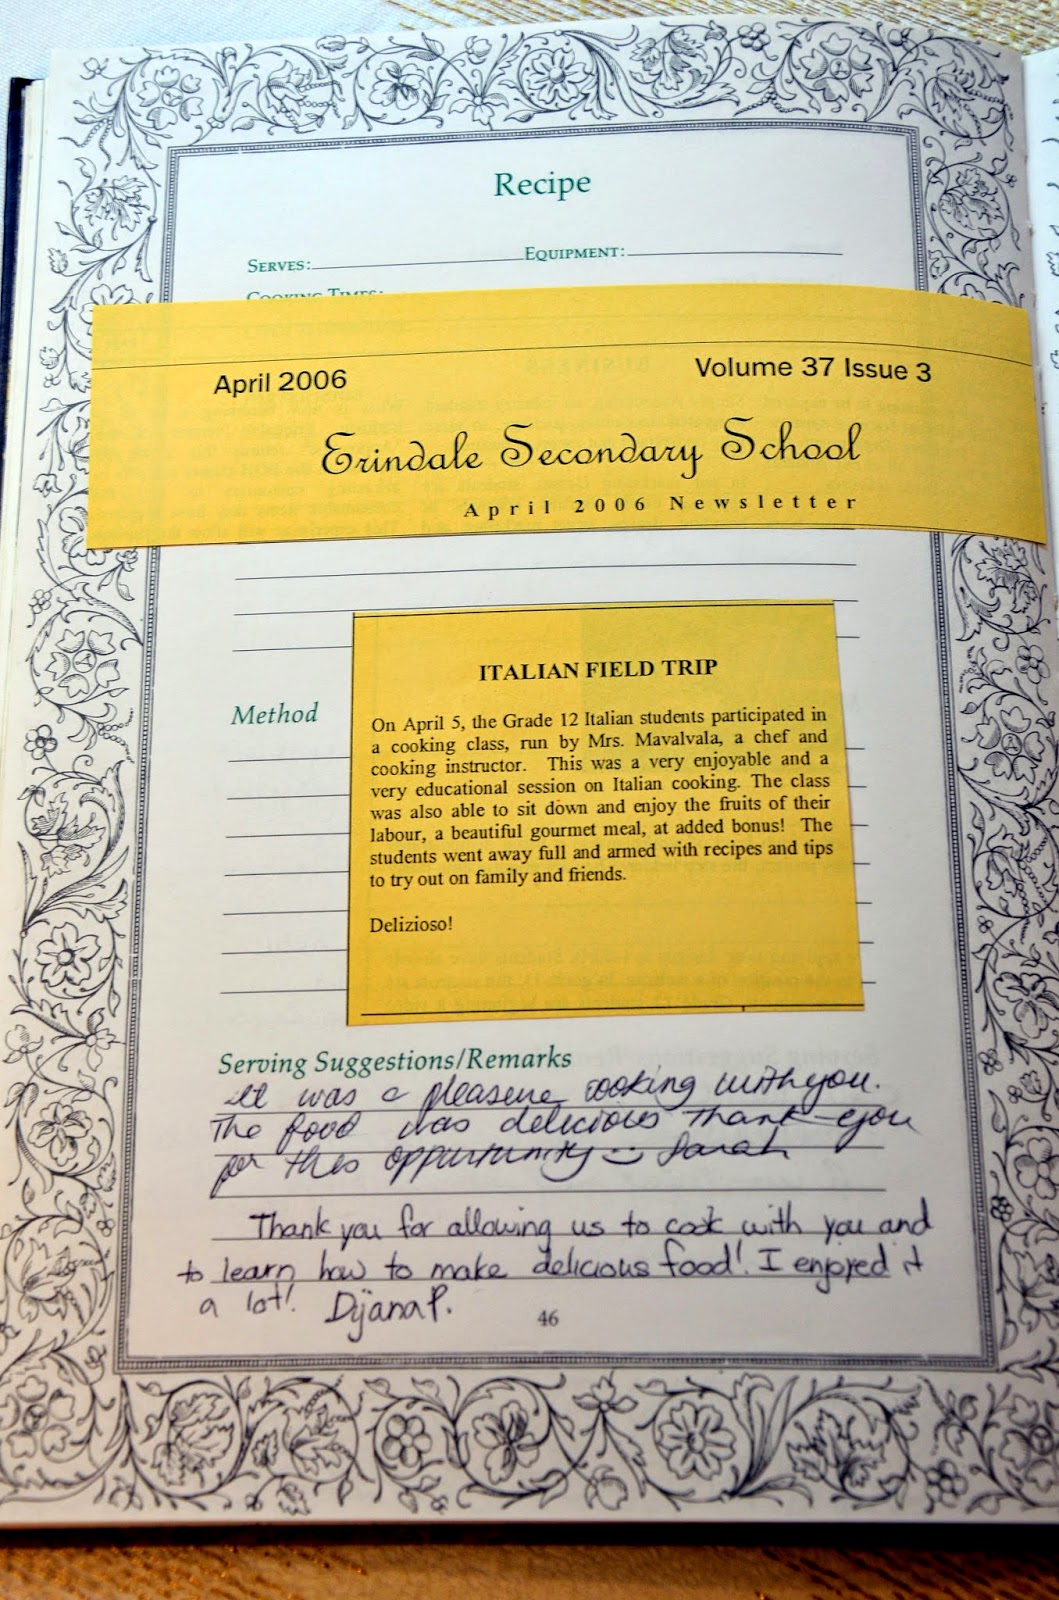 Recipe
SERVES: EQUIPMENT:
COOKING TIMES:
April 2006 Volume 37 Issue 3
Erindale Secondary School
April 2006 Newsletter
ITALIAN FIELD TRIP
Method
On April 5, the Grade 12 Italian students participated in
a cooking class, run by Mrs. Mavalvala, a chef and
cooking instructor. This was a very enjoyable and a
very educational session on Italian cooking. The class
was also able to sit down and enjoy the fruits of their
labour, a beautiful gourmet meal, at added bonus! The
students went away full and armed with recipes and tips
to try out on family and friends.
Delizioso!
Serving Suggestions/Remarks
It was a pleasure cooking with you.
The food was delicious thank-you
for this opportunity Sarah
Thank you for allowing us to cook with you and
to learn how to make delicious food! I enjoyed it
a lot! Dijana P.
46